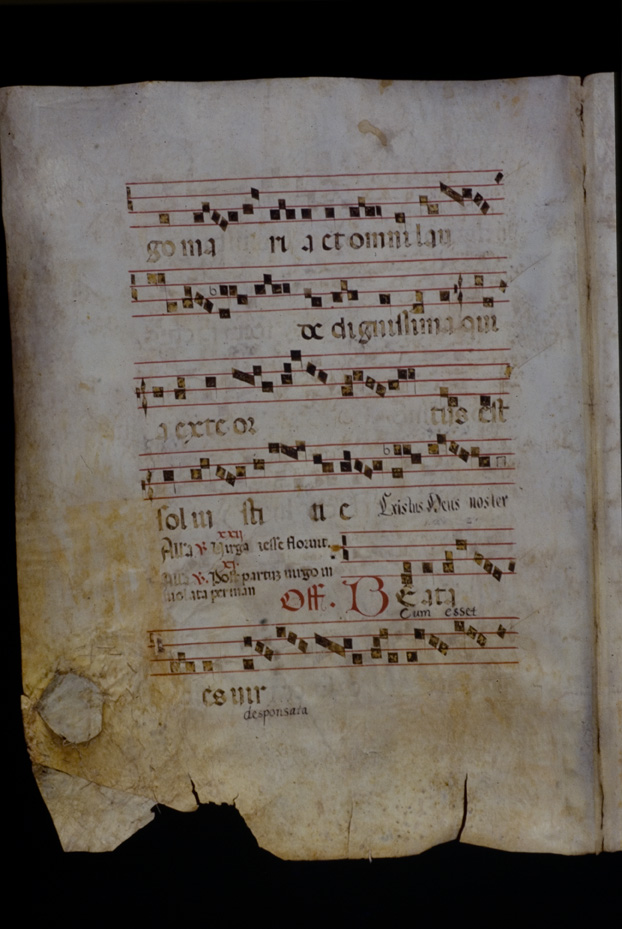 go ma ri a et omni lau
de dignissima qui
a ex te or tus est
sol iu sti ti e Christus Deus noster
xxij
Alla ℣. Virga iesse floruit
xj.
Alla ℣. Post partum uirgo in
uiolata perman
Off. BE ata
Cum esset
es uir
desponsata